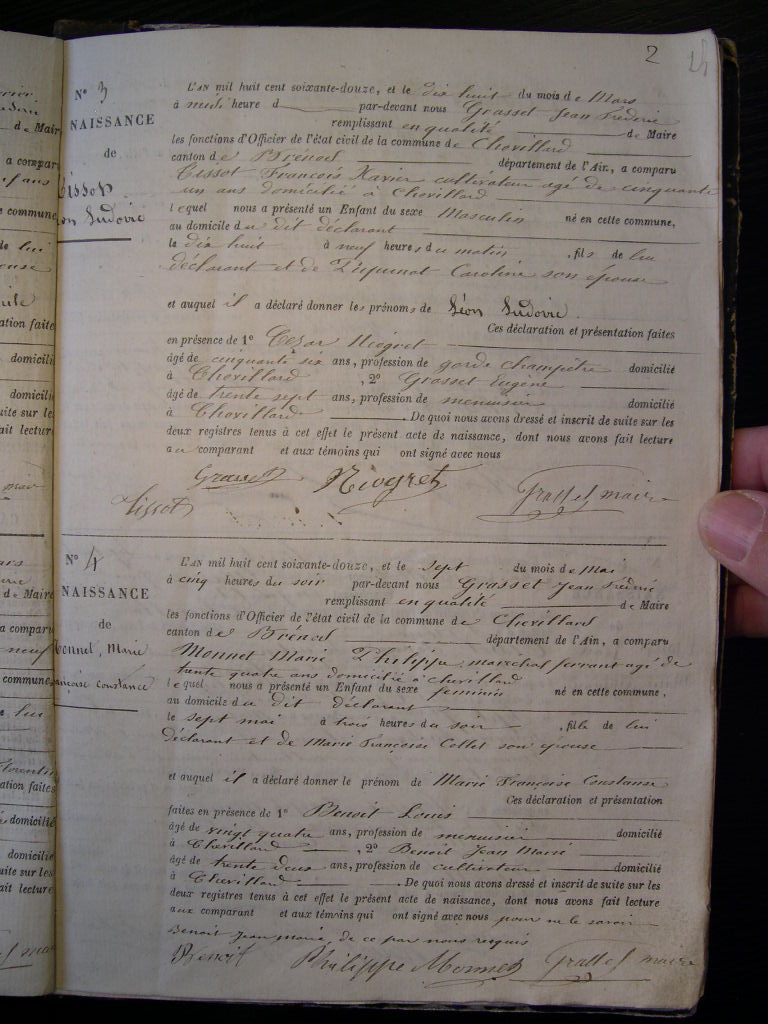 2
N° 3
NAISSANCE
de
Tissot
Léon Ludovic
L'AN mil huit cent soixante-douze, et le dix huit du mois de Mars
à midi heure d par-devant nous Grasset Jean Fréderic
remplissant en qualité de Maire
les fonctions d'Officier de l'état civil de la commune de Chevillard
canton de Brénod département de l'Ain, a comparu
Tissot François Xavier cultivateur agé de cinquante
un ans domicilié à Chevillard
lequel nous a présenté un Enfant du sexe Masculin né en cette commune,
au domicile du dit déclarant
le dix huit à neuf heures du matin , fils de lui
déclarant et de Caroline son épouse
et auquel il a déclaré donner les prénoms de Léon Ludovic
Ces déclaration et présentation faites
en présence de 1° Cezar Niogret
âgé de cinquante six ans, profession de garde champêtre domicilié
à Chevillard , 2° Grasset Eugène
âgé de trente sept ans, profession de menuisier domicilié
à Chevillard . De quoi nous avons dressé et inscrit de suite sur les
deux registres tenus à cet effet le présent acte de naissance, dont nous avons fait lecture
au comparant et aux témoins qui ont signé avec nous
Grasset Niogret Grasset maire
Tissot
N° 4
NAISSANCE
de
Monnet, Marie
Françoise Constance
L'AN mil huit cent soixante-douze, et le sept du mois de Mai
à cinq heures du soir par-devant nous Grasset Jean Fréderic
remplissant en qualité de Maire
les fonctions d'Officier de l'état civil de la commune de Chevillard
canton de Brénod département de l'Ain, a comparu
Monnet Marie Philippe, marechal ferrant agé de
trente quatre ans domicilié à chevillard
lequel nous a présenté un Enfant du sexe feminin né en cette commune,
au domicile du dit déclarant
le sept mai à trois heures du soir , fille de lui
déclarant et de Marie Françoise Collet son épouse
et auquel il a déclaré donner le prénom de Marie Françoise Constance
Ces déclaration et présentation
faites en présence de 1° Benoit Louis
âgé de vingt quatre ans, profession de menuisier domicilié
à Chevillard , 2° Benoit Jean Marie
âgé de trente deux ans, profession de cultivateur domicilié
à Chevillard . De quoi nous avons dressé et inscrit de suite sur les
deux registres tenus à cet effet le présent acte de naissance, dont nous avons fait lecture
aux comparant et aux témoins qui ont signé avec nous pour ne le savoir
Benoit Jean marie, de ce par nous requis
Benoit Philippe Monnet Grasset maire